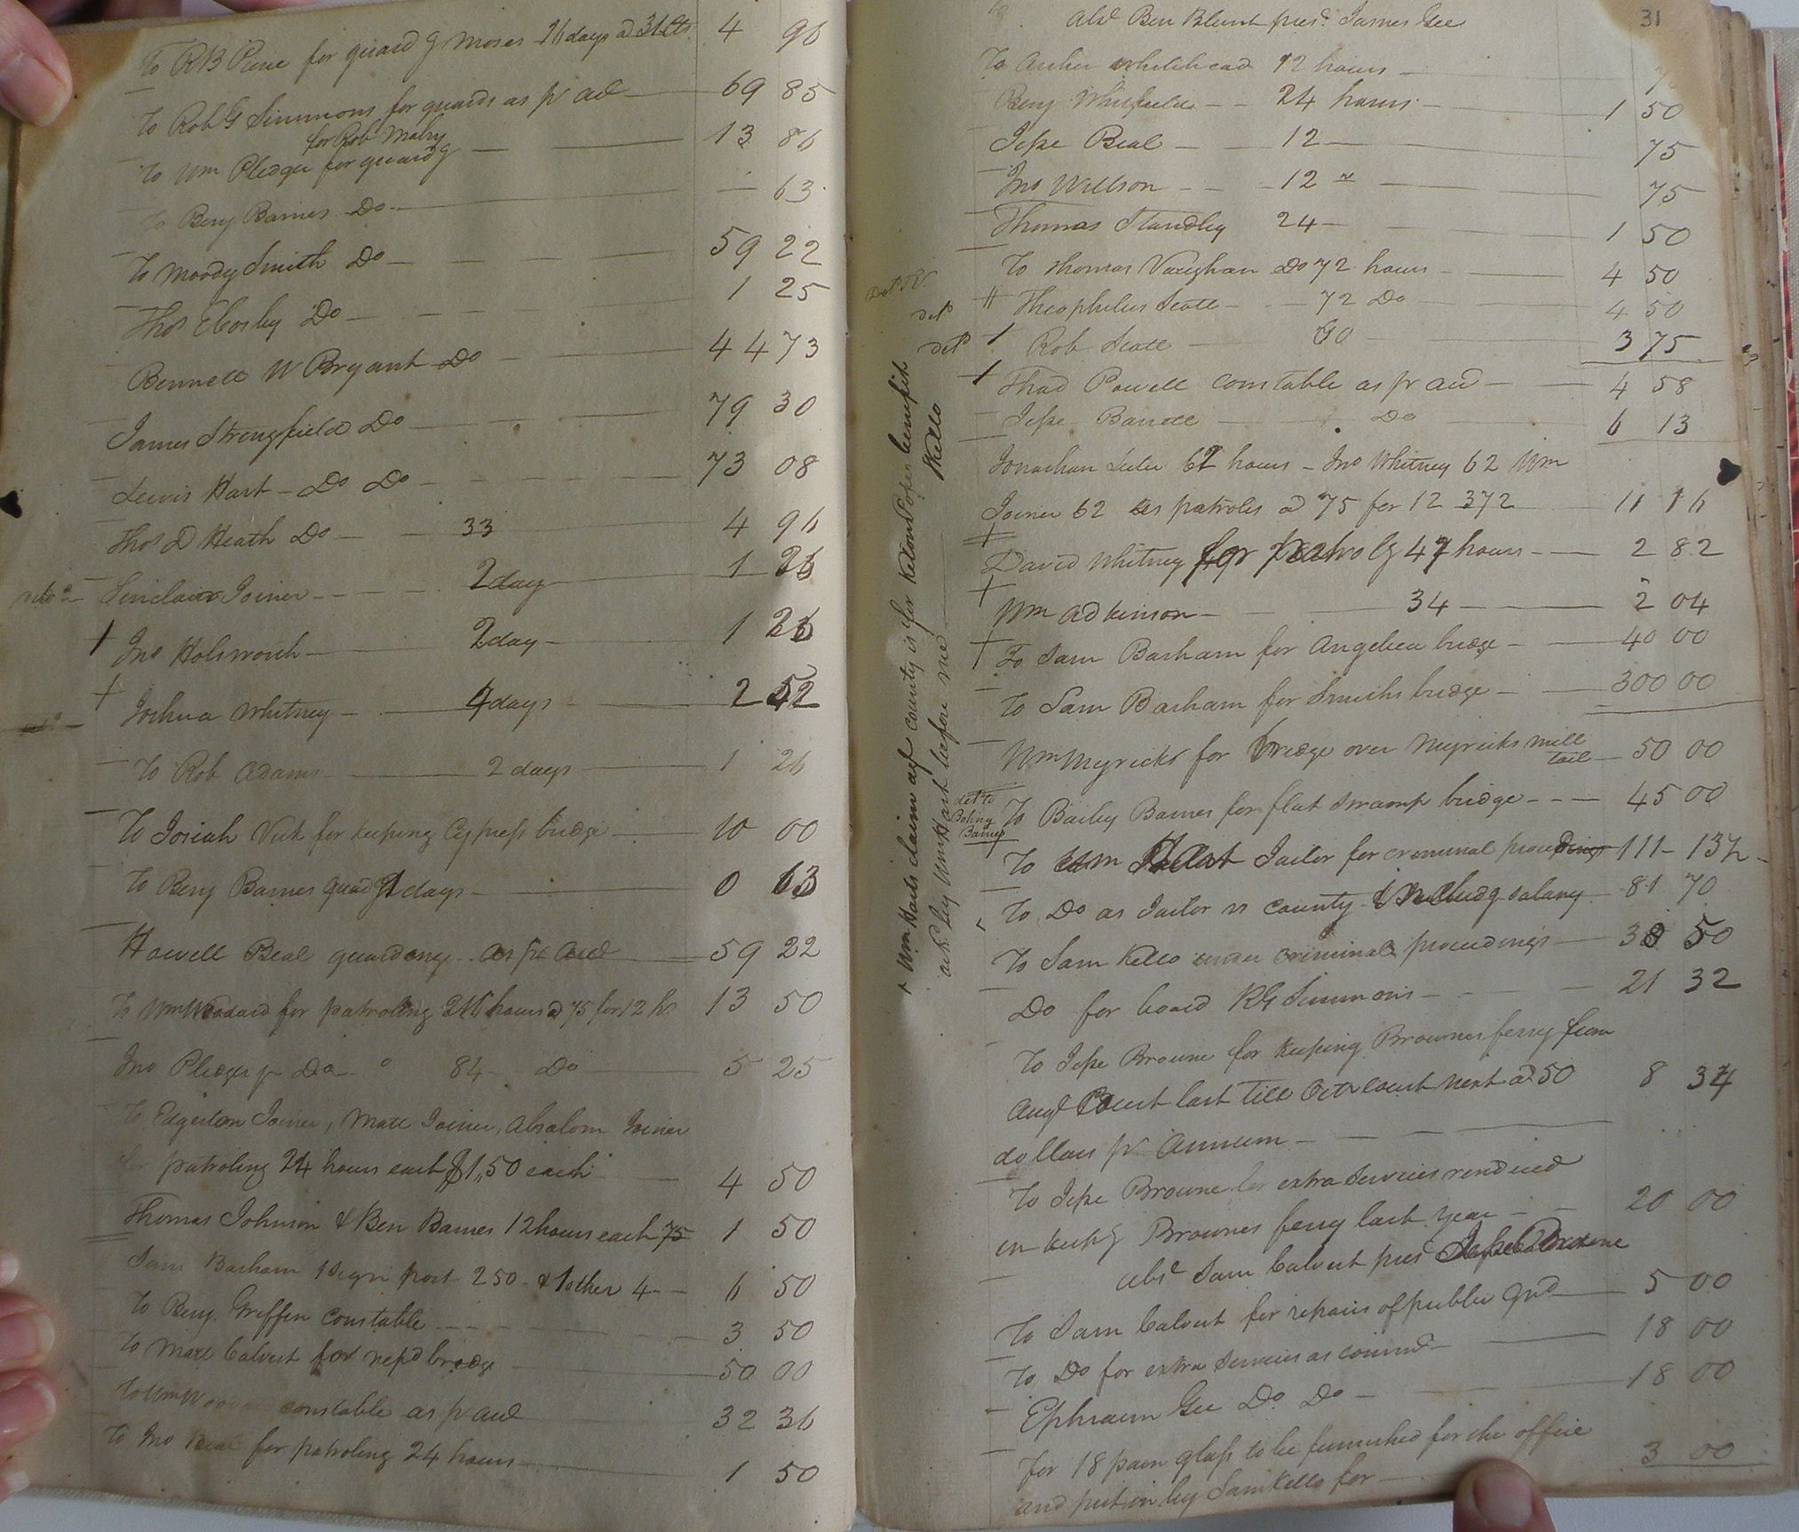 To RB Pane for guard g Moses 16 days a 31 cts 4 96
To Rob G Simmons for guards as pr acd 69 85
for Rob Mabry
To Wm Pledger for guardg 13 86
To Benj Barnes Do 63
To Moody Smith Do 59 22
Thos Do 1 25
Bennett W Bryant Do 44 73
James Stringfield Do 79 30
Lewis Hart Do Do 73 08
Thos D Heath Do 33 4 96
Sinclair Joiner 2 day 1 26
Jno Holsworth 2 day 1 26
Joshua Whitney 4 days 2 52
To Rob Adams 2 days 1 26
To Josiah Vick for keeping Cypress bridge 10 00
To Benj Barnes guard g 1 days 0 63
Howell Beal guarding as pr acd 59 22
To Wm Woodard for patroling 216 hours a 75 for 12 hr 13 50
Jno Pledger jr Do 84 Do 5 25
To Edgerton Joiner, Mate Joiner, Absalom Joiner
for patroling 24 hours each $1,,50 each 4 50
Thomas Johnson & Ben Barnes 12 hours each 75 1 50
Sam Barham 1 sign post 2 50 & 1 other 4 6 50
To Benj Griffin constable 3 50
To Mare Calvert for rep'd bridge 50 00
To Wm constable as pr acd 32 36
To Jno Beal for patroling 24 hours 1 50
31
Abs Ben Blunt pres. James Gee
To Archer Whitehead 12 hours
Benj Whitfield 24 hours 1 50
Jesse Beal 12 75
Jno Willson 12 " 75
Thomas Standley 24 1 50
To Thomas Vaughan Do 72 hours 4 50
det Theophilus Scott 72 Do 4 50
det Rob Scott 60 3 75
Thad Powell constable as pr acd 4 58
Jesse Barrett Do 6 13
Jonathan Luter 62 hours - Jno Whitney 62 Wm
Joiner 62 as patroles a 75 for 12 372 11 16
David Whitney for patrolg 47 hours 2 82
Wm Adkinson 34 2 04
To Sam Barham for Angelica bridge 40 00
To Sam Barham for Smiths bridge 300 00
Wm Myricks for bridge over Myricks mill
tail 50 00
det to
Boling
Barnes
To Bailey Barnes for flat swamp bridge 45 00
To Wm Hart Jailor for criminal proceedings 111 13½
To Do as Jailor vs county includg salary 81 70
To Sam Kello under criminal proceedings 38 50
Do for board RG Simmons 21 32
To Jesse Browne for keeping Brownes ferry from
Augt Court last till Octr court next a 50 8 34
dollars pr Annum
To Jesse Browne for extra services rendered
in keepg Brownes ferry last year 20 00
abs Sam Calvert pres Jesse Browne
To Sam Calvert for repairs of public gnd 5 00
To Do for extra services as commr 18 00
Ephraim Gee Do Do 18 00
For 18 pane glass to be furnished for the office
and put in by Sam Kello for 3 00
Wm Harts claim agt county is for Benefit
ack by Wm Hart before me Kello